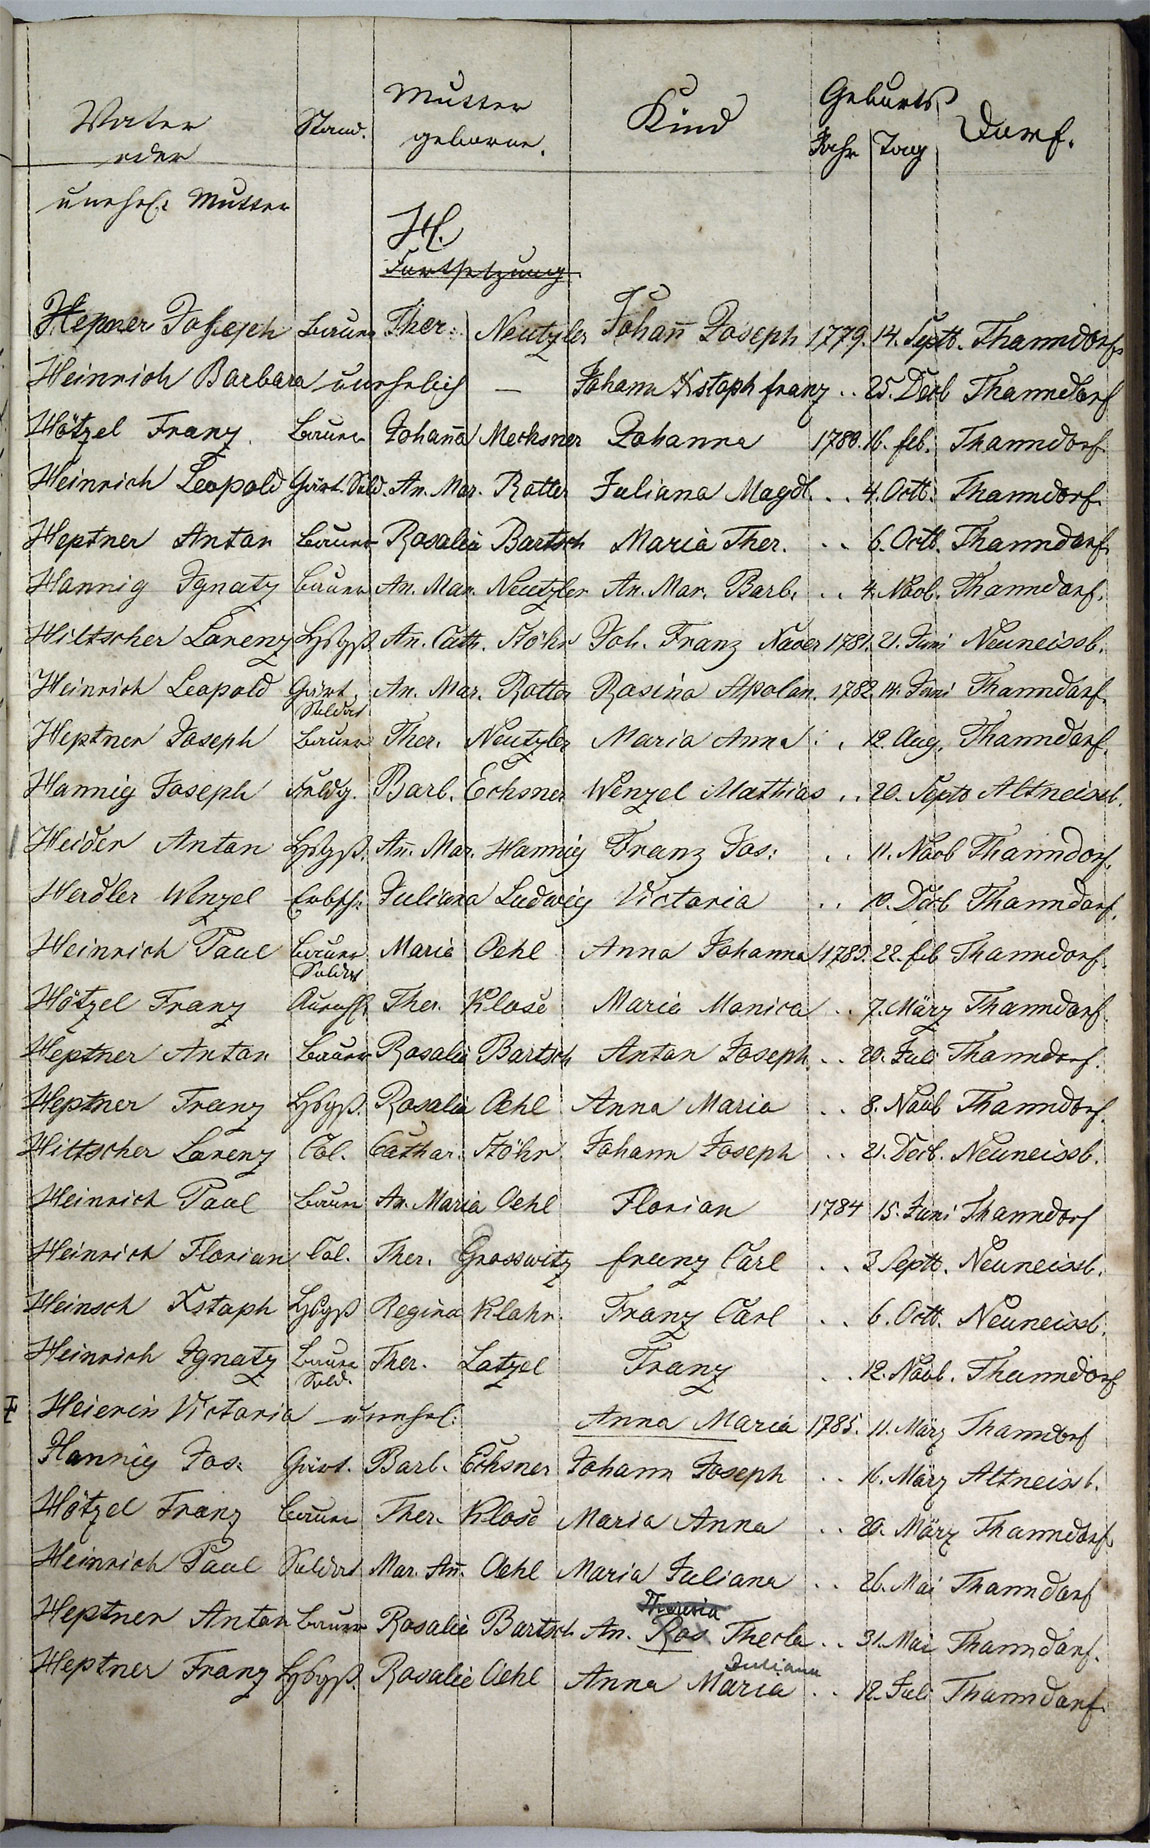 Vater oder unehel. Mutter Stand. Mutter geborne. Kind Geburts Jahr Tag Dorf.
H.
Fortsetzung
Hepner Joseph Bauer Ther. Neutzler Johan̅ Joseph 1779. 14. Septb. Thanndorf
Heinrich Barbara unehelich — Johann Xstoph Franz .. 25. Decb Thanndorf
Hötzel Franz Bauer Johan̅a Mechsner Johanna 1780. 16. feb. Thanndorf
Heinrich Leopold Gärt. Sold. An. Mar. Rotter Juliana Magdl. .. 4. Octb. Thanndorf.
Heptner Anton Bauer Rosalia Bartsch Maria Ther. .. 6. Octb. Thanndorf.
Hannig Ignatz Bauer An. Mar. Neutzler An. Mar. Barb. .. 4. Novb. Thanndorf.
Hiltscher Lorenz An̅. Cath. Stöhr Joh. Franz Xaver 1781. 21. Juni Neuneissb.
Heinrich Leopold Gärt. Soldat An. Mar. Rotter Rosina Apolon. 1782. 14. Juni Thanndorf.
Heptner Joseph Bauer Ther. Neutzler Maria Anna .. 12. Aug. Thanndorf.
Hannig Joseph Barb. Echsner Wenzel Mathias .. 20. Septb Altneissb.
Heider Anton An̅. Mar. Hannig Franz Jos: .. 11. Novb Thanndorf.
Herdler Wenzel Juliana Ludwig Victoria .. 10. Decb Thanndorf.
Heinrich Paul Bauer Soldat Maria Oehl Anna Johanna 1783. 22. feb Thanndorf.
Hötzel Franz Ther. Klose Maria Monica .. 7. März Thanndorf.
Heptner Anton Bauer Rosalia Bartsch Anton Joseph .. 20. Juli Thanndorf.
Heptner Franz Rosalia Oehl Anna Maria .. 8. Novb Thanndorf.
Hiltscher Lorenz Col. Cathar. Stöhr Johann Joseph .. 21. Decb. Neuneissb.
Heinrich Paul Bauer An. Maria Oehl Florian 1784 15. Juni Thanndorf
Heinrich Florian Col. Ther. Grosswitz Franz Carl .. 3 Septb. Neuneissb.
Heinsch Xstoph Regina Klahr. Franz Carl .. 6. Octb. Neuneissb.
Heinrich Ignatz Bauer Sold. Ther. Latzel Franz .. 12. Novb. Thanndorf
Heierin Victoria unehel: Anna Maria 1785. 11. März Thanndorf
Hannig Jos. Gärt. Barb. Echsner Johann Joseph .. 16. März Altneissb.
Hötzel Franz Bauer Ther. Klose Maria Anna .. 20. März Thanndorf
Heinrich Paul Soldat Mar. An̅. Oehl Maria Juliana .. 26. Mai Thanndorf
Theresia
Heptner Anton Bauer Rosalie Bartsch An. Ros Thecla .. 31. Mai Thanndorf.
Juliana
Heptner Franz Rosalie Oehl Anna Maria .. 12. Juli Thanndorf.